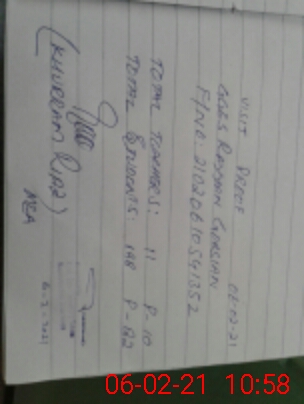 VISIT PROOF 06-02-21
GGES RAJJAN GUJSIAN
F/NO: 21020610541352
TOTAL TEACHERS: 11 P-10
TOTAL STUDENTS: 198 P-82
(KHURRAM RIAZ)
MEA
6-2-2021
06-02-21 10:58